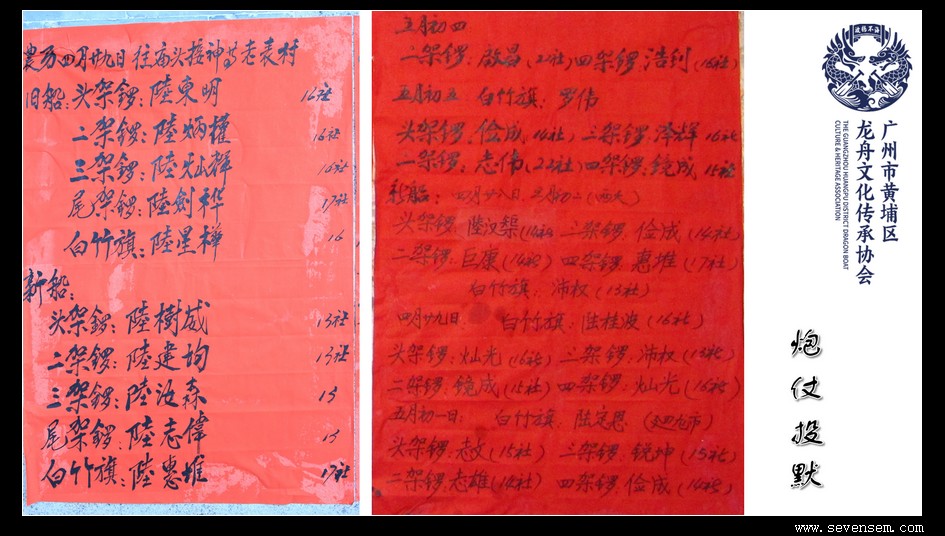 農历四月廿九日 往庙头接神 老表村
旧船：头架锣：陸東明 16社
二架锣：陸炳權 16社
三架锣：陸灿辉 16社
尾架锣：陸劍桦 17社
白竹旗：陸星樺 16
新船：
头架鑼：陸樹威 13社
二架鑼：陸建均 13社
三架鑼：陸汝森 13
尾架鑼：陸志偉 13
白竹旗：陸惠堆 17社
五月初四
二架锣：啟昌（22社）四架锣：浩钊（16社）
五月初五 白竹旗：罗伟
头架锣：俭成（14社）三架锣：泽辉 16社
二架锣：志伟（22社）四架锣：锐成 15社
新船：四月廿八日 五月初二（两天）
头架锣：陸汉 （14社）三架锣：俭成（14社）
二架锣：巨康（14社）四架锣：惠堆（17社）
白竹旗：沛权（13社）
四月廿九日： 白竹旗：陆桂波（16社）
头架锣：灿光（16社）三架锣：沛权（13社）
二架锣：锐成（15社）四架锣：灿光（16社）
五月初一日： 白竹旗：陆定恩
头架锣：志文（15社）三架锣：锐坤（15社）
二架锣：志雄（14社）四架锣：俭成（14社）
广州市黄埔区
龙舟文化传承协会
THE GUANGZHOU HUANGPU DISTRICT DRAGON BOAT
CULTURE & HERITAGE ASSOCIATION
炮仗投默
www.sevensem.com